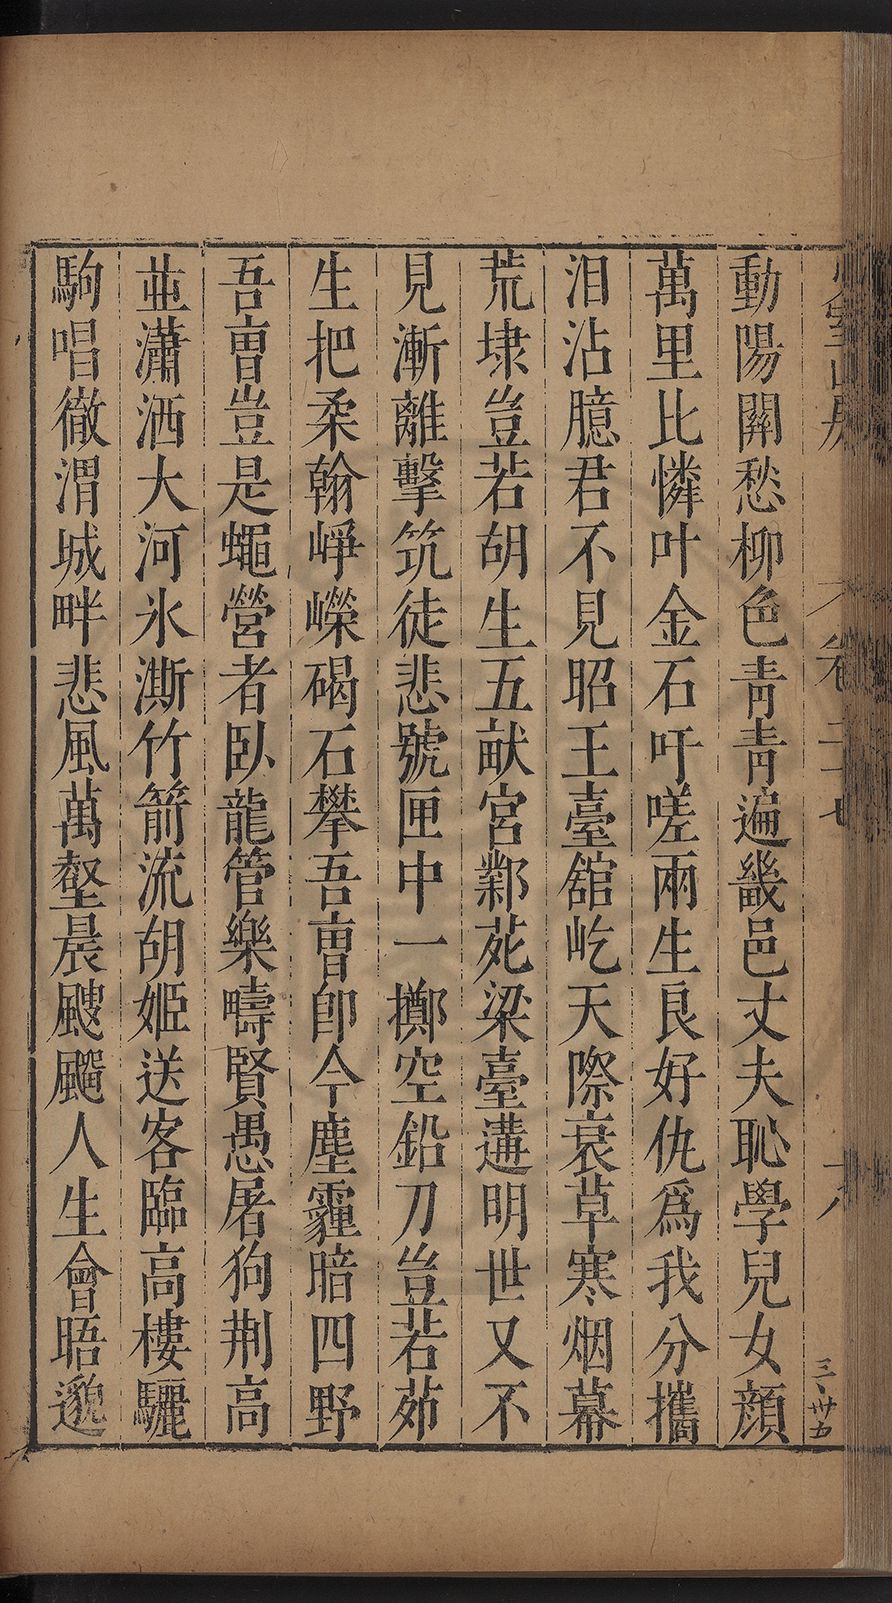 動陽關愁柳色靑靑遍畿邑丈夫恥學兒女顔
萬里比憐叶金石吁嗟兩生良好仇爲我分攜
泪沾臆君不見昭王臺舘屹天際衰草寒烟幕
荒埭豈若胡生五献宮鄴苑梁臺遘明世又不
見漸離擊筑徒悲號匣中一擲空鉛刀豈若茹
生把柔翰崢嶸碣石攀吾曹卽今塵霾暗四野
吾曹豈是蠅營者臥龍管樂疇賢愚屠狗荆高
並瀟洒大河氷澌竹箭流胡姬送客臨高樓驪
駒唱徹渭城畔悲風萬壑晨颼飀人生會晤邈
卷二十七
十八
三、卅五